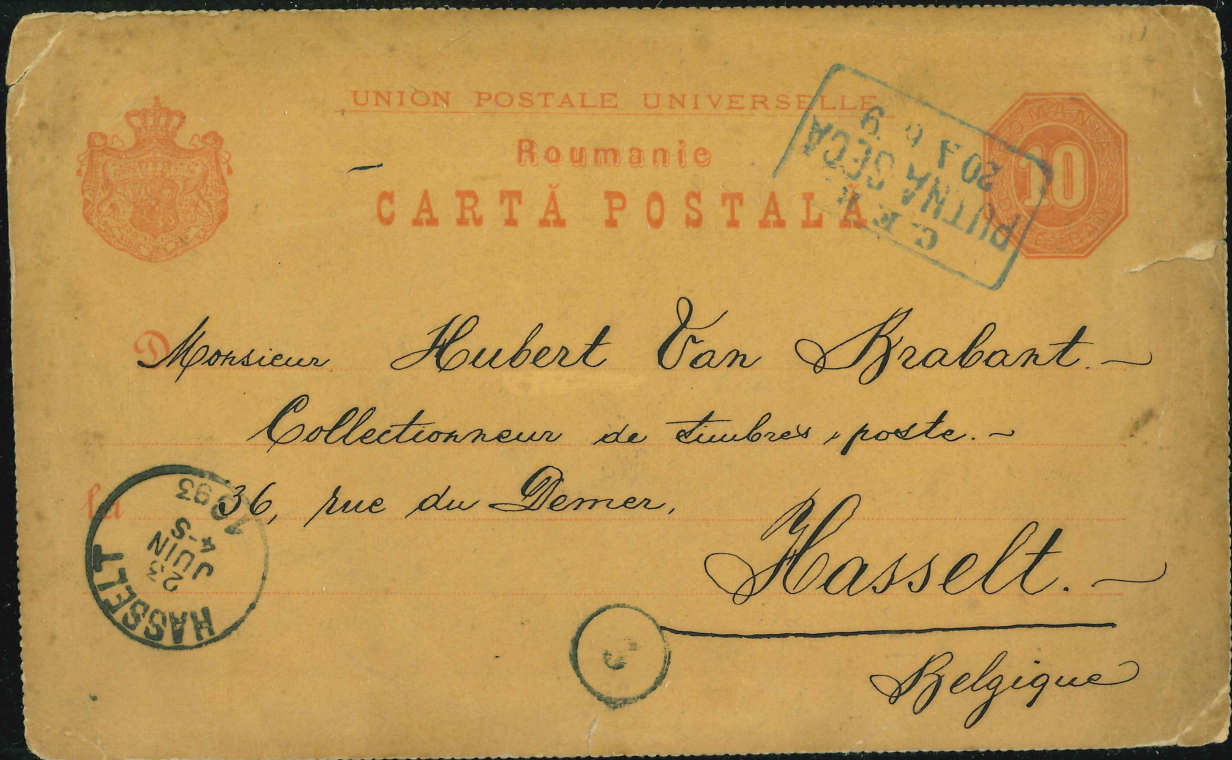 UNION POSTALE UNIVERSELLE
Roumanie
CARTĂ POSTALĂ
10
C.F.R.
PUTNA SECA
D
Monsieur Hubert Van Brabant.
Collectionneur de timbres poste.
La
36, rue du Demer,
Hasselt.
Belgique
HASSELT
23
JUIN
4-S
1893
3